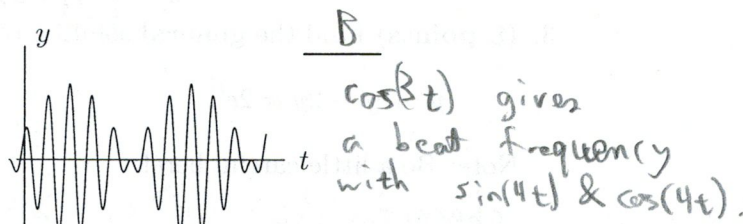 y
B
cos(3t) gives
a beat frequency
t
with sin(4t) & cos(4t).